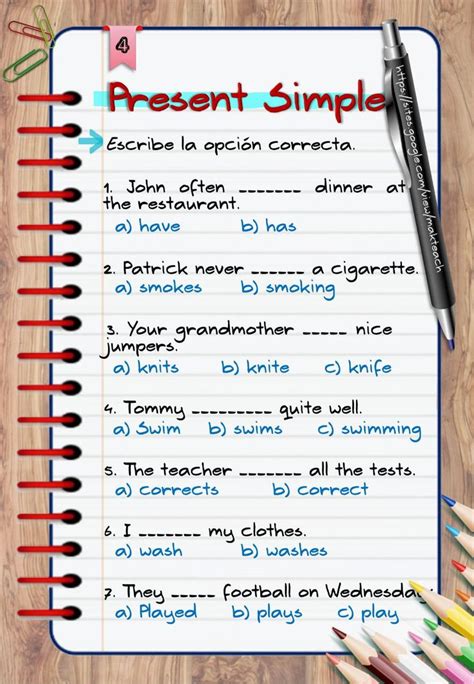 4
Present Simple
Escribe la opción correcta.
1. John often _______ dinner at
the restaurant.
a) have b) has
2. Patrick never ______ a cigarette.
a) smokes b) smoking
3. Your grandmother _____ nice
jumpers.
a) knits b) knite c) knife
4. Tommy _________ quite well.
a) Swim b) swims c) swimming
5. The teacher ________ all the tests.
a) corrects b) correct
6. I _______ my clothes.
a) wash b) washes
7. They _____ football on Wednesday.
a) Played b) plays c) play
https://sites.google.com/view/makteach